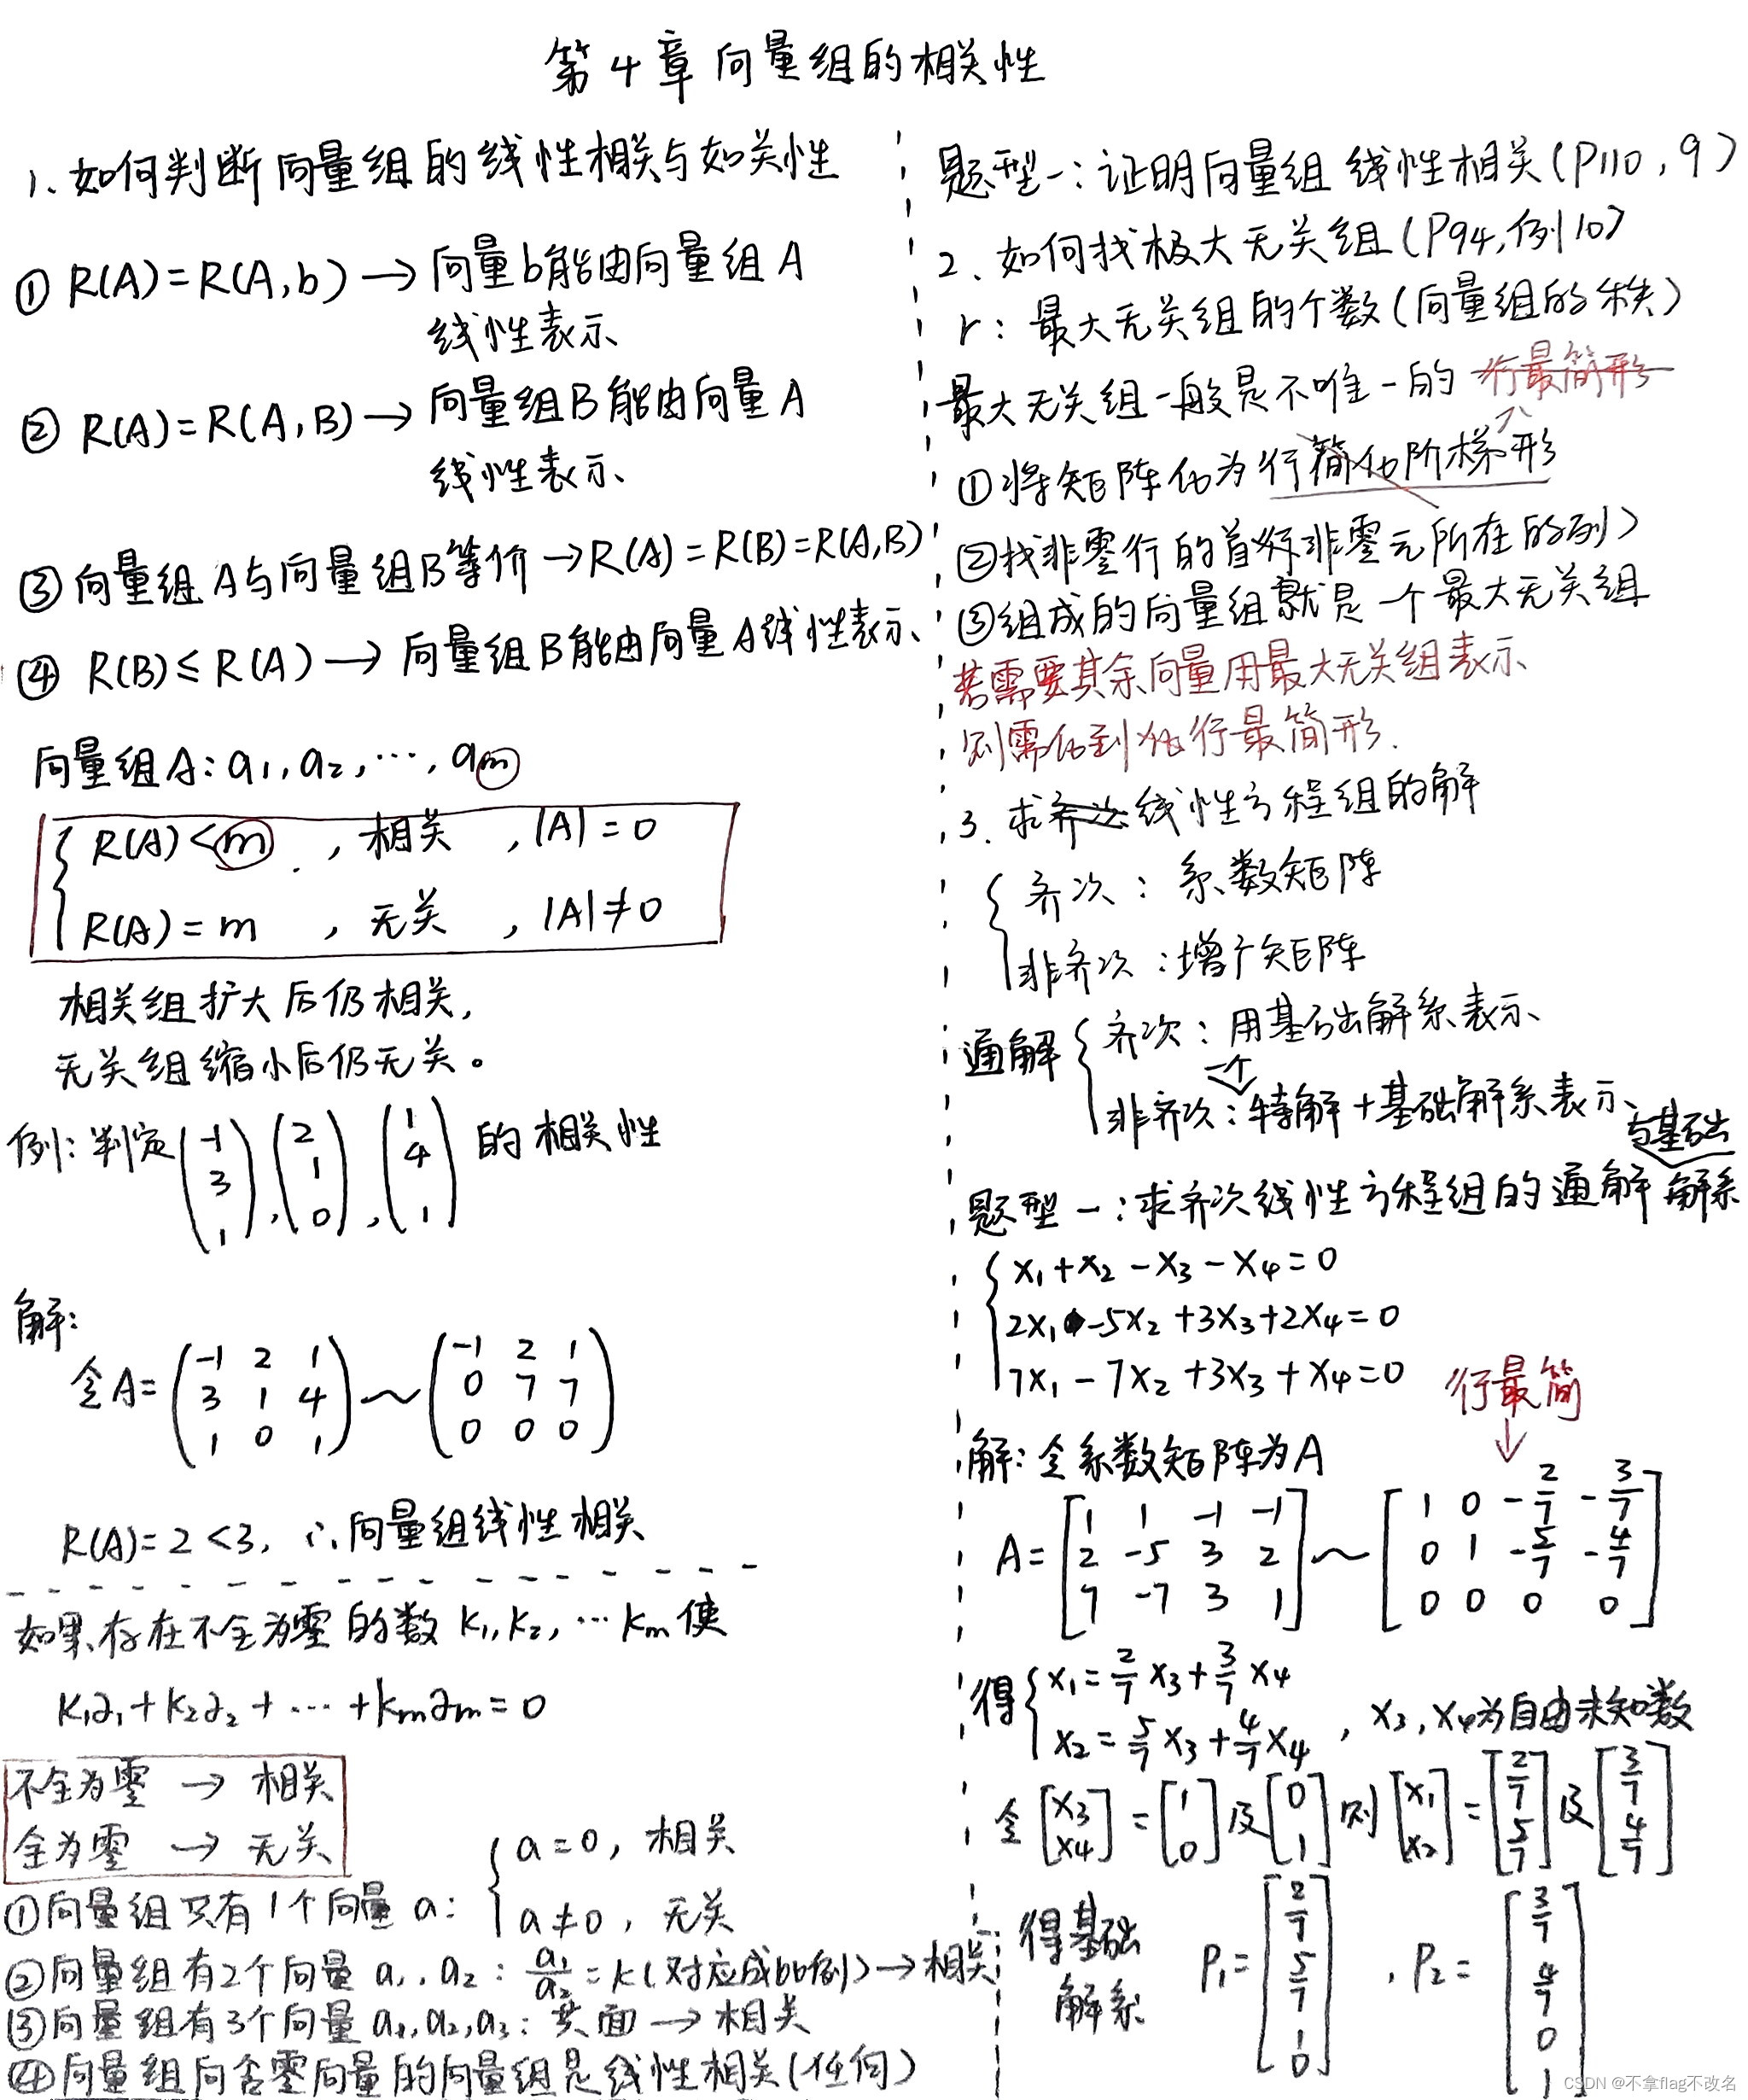 第4章 向量组的相关性
1、如何判断向量组的线性相关与如关性
① R(A)=R(A,b) → 向量b能由向量组A
线性表示
② R(A)=R(A,B) → 向量组B能由向量A
线性表示
③ 向量组A与向量组B等价 → R(A)=R(B)=R(A,B)
④ R(B)≤R(A) → 向量组B能由向量A线性表示
向量组A: a₁, a₂, ⋯, aₘ
R(A)<m , 相关 , |A|=0
R(A)=m , 无关 , |A|≠0
相关组扩大后仍相关,
无关组缩小后仍无关。
例: 判定 (-1 3 1), (2 1 0), (1 4 1) 的相关性
解:
令A= (-1 2 1 ~ (-1 2 1
3 1 4 0 7 7
1 0 1) 0 0 0)
R(A)=2<3, ∴向量组线性相关
如果存在不全为零的数 k₁,k₂,⋯kₘ使
k₁a₁+k₂a₂+⋯+kₘaₘ=0
不全为零 → 相关
全为零 → 无关
①向量组只有1个向量 a: { a=0, 相关
a≠0, 无关
②向量组有2个向量 a₁,a₂: a₁/a₂=k(对应成比例)→相关
③向量组有3个向量 a₁,a₂,a₃: 共面 → 相关
④向量组向含零向量的向量组是线性相关(任何)
题型一: 证明向量组线性相关(P110, 9)
2、如何找极大无关组(P94,例10)
r: 最大无关组的个数(向量组的秩)
最大无关组一般是不唯一的 行最简形
①将矩阵化为行简化阶梯形
②找非零行的首非零元所在的列)
③组成的向量组就是一个最大无关组
若需要其余向量用最大无关组表示
则需化到行最简形.
3. 求齐次线性方程组的解
{ 齐次: 系数矩阵
非齐次: 增广矩阵
通解 { 齐次: 用基础解系表示
非齐次: 一个特解+基础解系表示
题型一: 求齐次线性方程组的通解与基础解系
{ x₁+x₂-x₃-x₄=0
2x₁-5x₂+3x₃+2x₄=0
7x₁-7x₂+3x₃+x₄=0
行最简
↓
解: 令系数矩阵为A
A= [1 1 -1 -1 ~ [1 0 -2/7 -3/7
2 -5 3 2 0 1 -5/7 -4/7
7 -7 3 1] 0 0 0 0]
得 { x₁=2/7 x₃+3/7 x₄
x₂=5/7 x₃+4/7 x₄ , x₃,x₄为自由未知数
令 [x₃ x₄]=[1 0]及[0 1] 则 [x₁ x₂]=[2/7 5/7]及[3/7 4/7]
得基础解系 P₁=[2/7 5/7 1 0], P₂=[3/7 4/7 0 1]
CSDN @不拿flag不改名